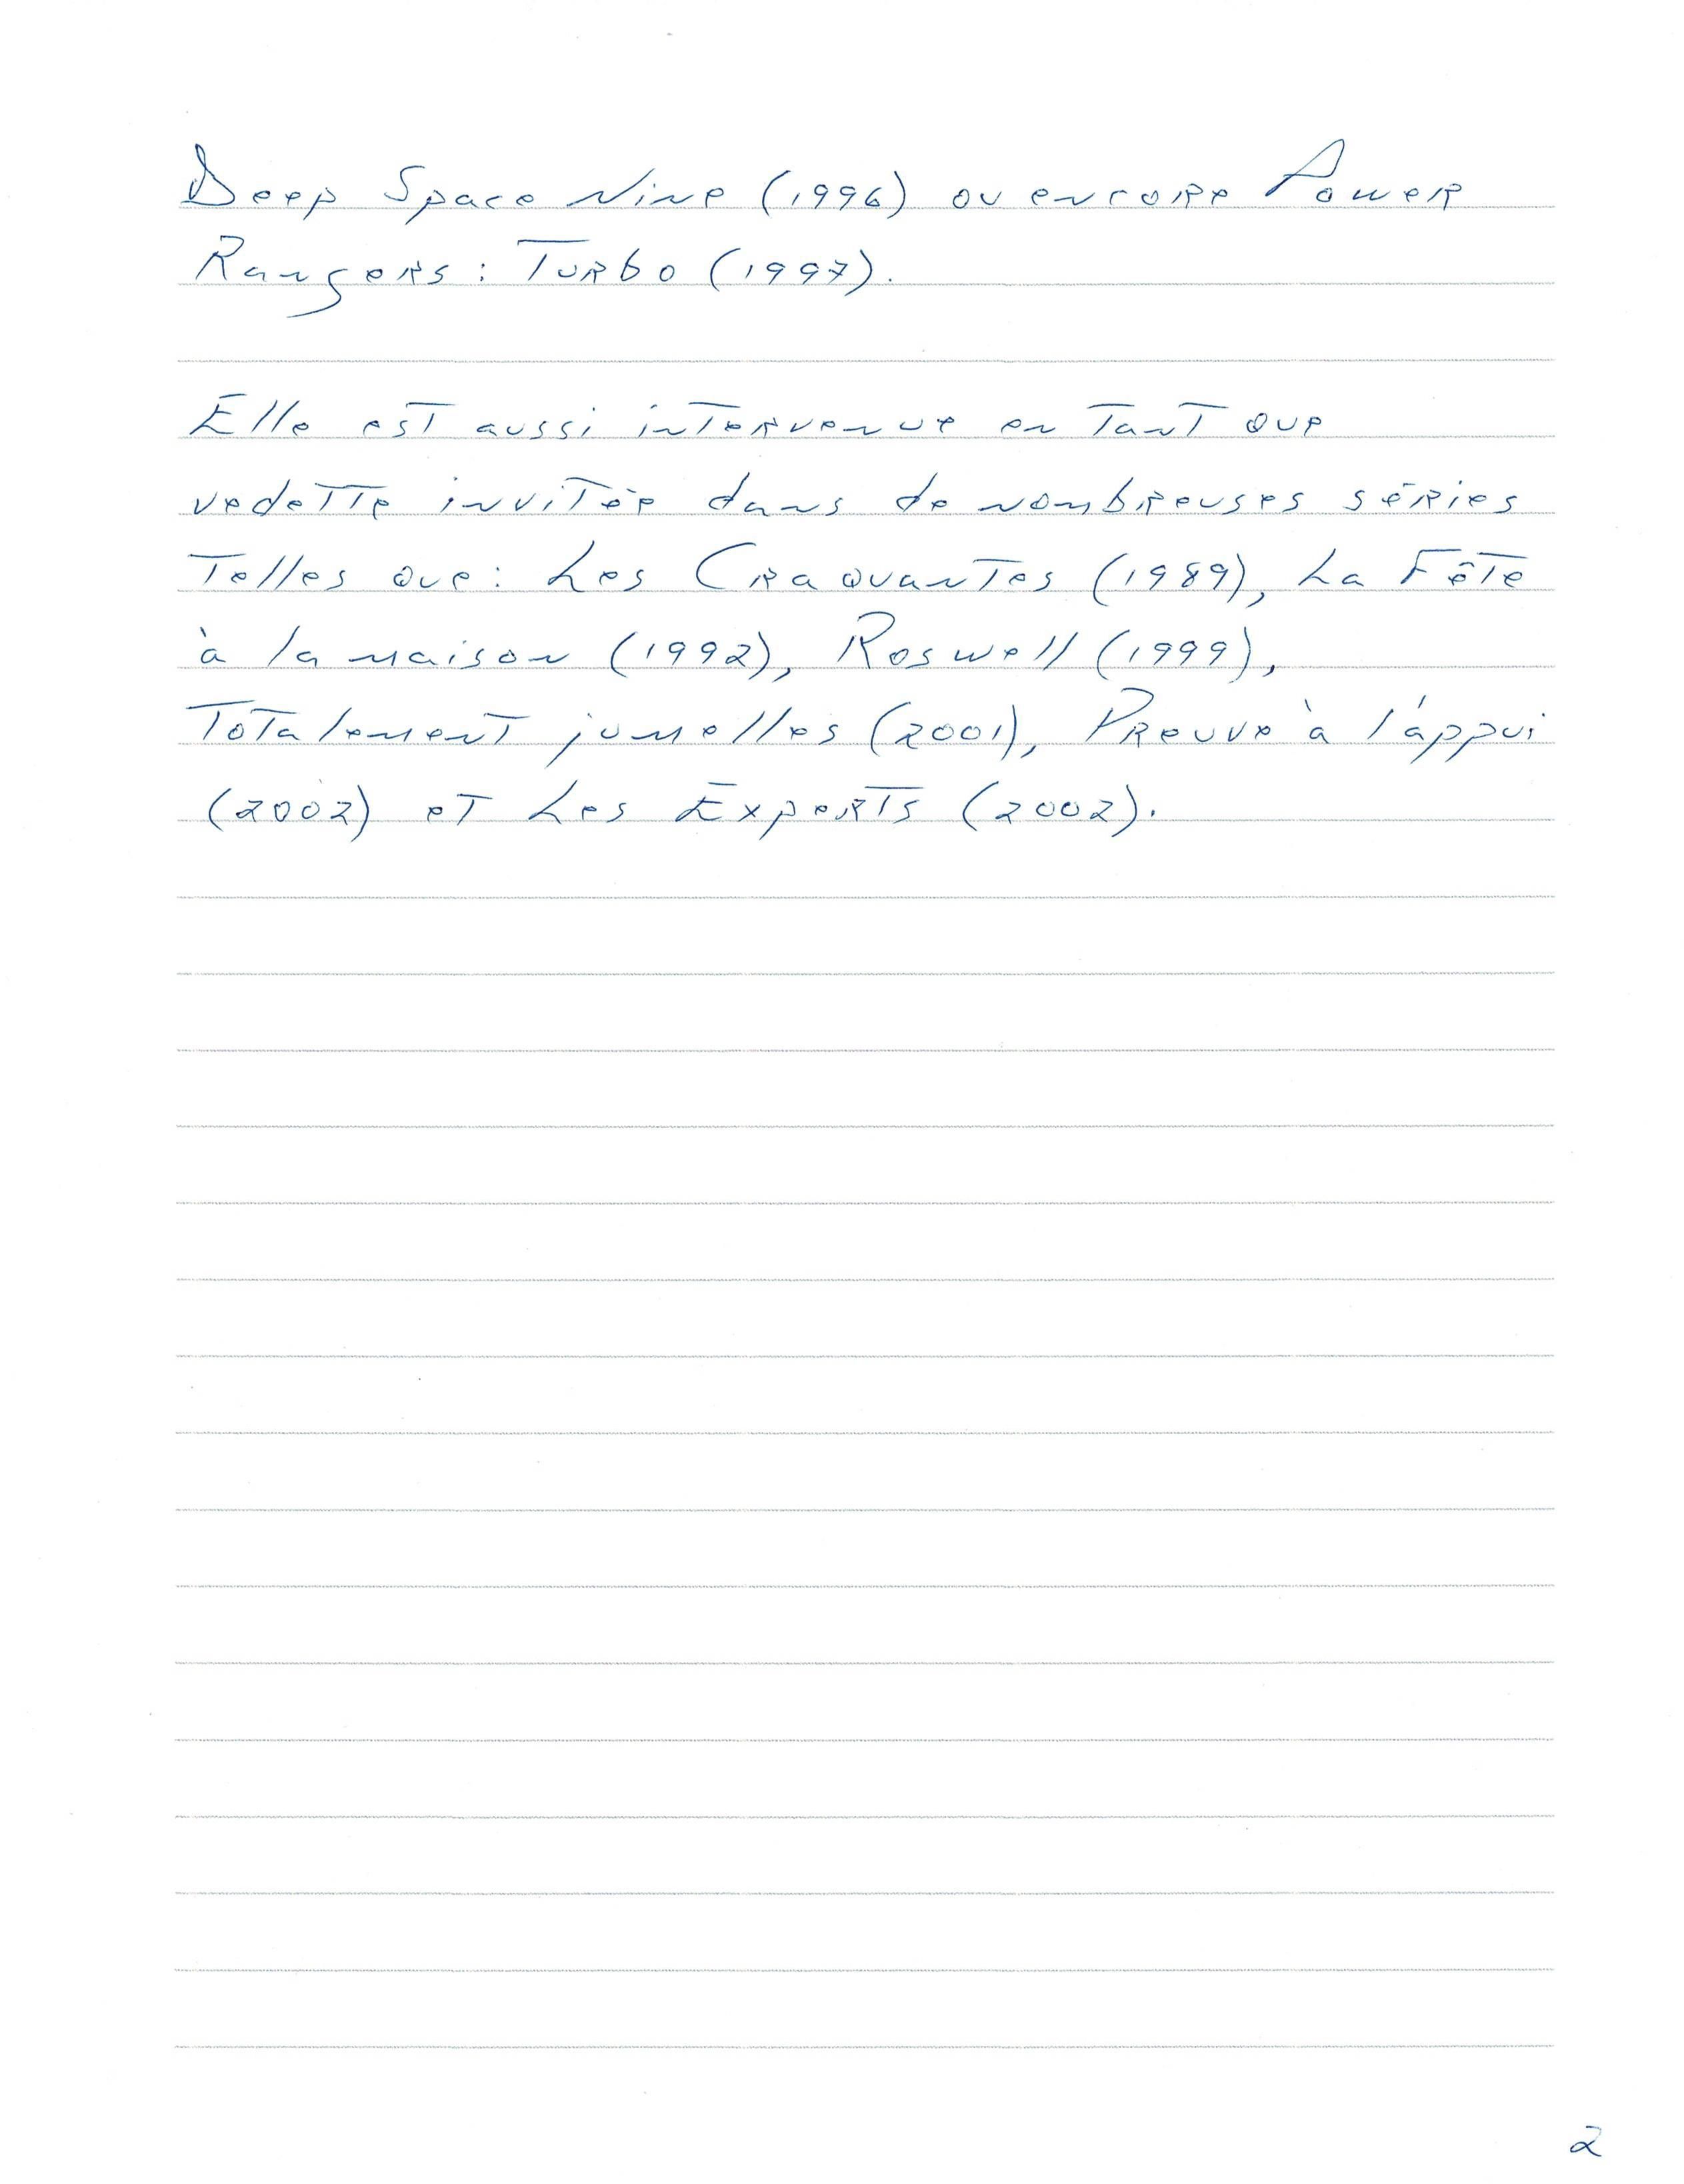 Deep Space Nine (1996) ou encore Power
Rangers : Turbo (1997).
Elle est aussi intervenue en tant que
vedette invitée dans de nombreuses séries
telles que : Les Craquantes (1989), La Fête
à la maison (1992), Roswell (1999),
Totalement jumelles (2001), Preuve à l'appui
(2002) et Les Experts (2002).
2